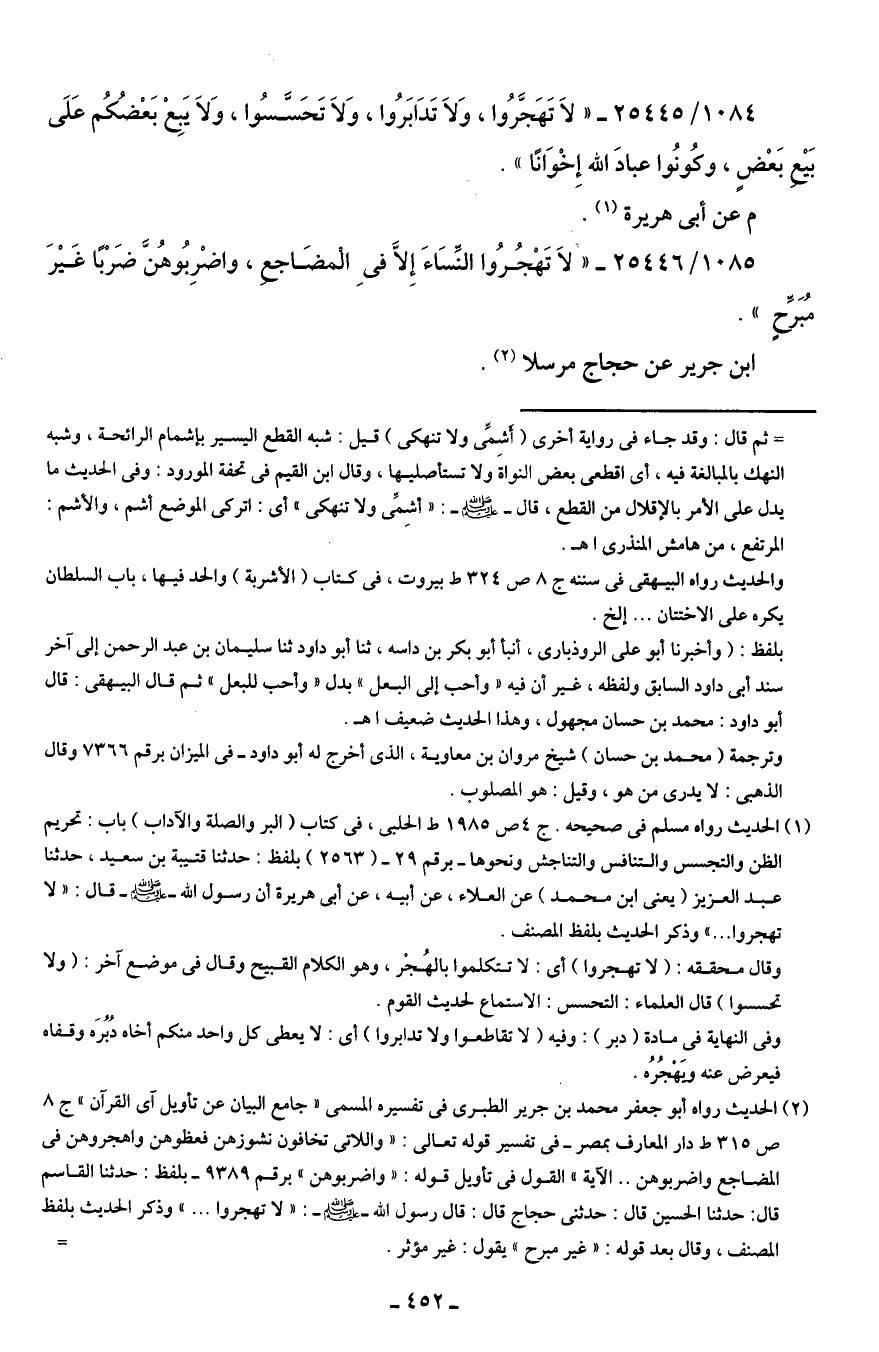 ٢٥٤٤٥/١٠٨٤ ـ « لاَ تَهَجَّرُوا ، وَلاَ تَدَابَرُوا ، وَلاَ تَحَسَّسُوا ، وَلاَ يَبِعْ بَعْضُكُم عَلَى
بَيْعِ بَعْضٍ ، وكُونُوا عبادَ الله إِخْوَانًا » .
م عن أبى هريرة (١) .
٢٥٤٤٦/١٠٨٥ ـ « لاَ تَهْجُرُوا النِّسَاءَ إِلاَّ فى الْمضَاجِع ، واضْرِبُوهُنَّ ضَرْبًا غَيْرَ
مُبَرِّحٍ » .
ابن جرير عن حجاج مرسلا (٢) .
= ثم قال : وقد جاء فى رواية أخرى ( أَشمِّى ولا تنهكى ) قيل : شبه القطع اليسير بإشمام الرائحة ، وشبه
النهك بالمبالغة فيه ، أى اقطعى بعض النواة ولا تستأصليها ، وقال ابن القيم فى تحفة المورود : وفى الحديث ما
يدل على الأمر بالإقلال من القطع ، قال ـ ﷺ ـ : « أشمِّى ولا تنهكى » أى : اتركى الموضع أشم ، والأشم :
المرتفع ، من هامش المنذرى ا هـ .
والحديث رواه البيهقى فى سننه ج ٨ ص ٣٢٤ ط بيروت ، فى كتاب ( الأشربة ) والحد فيها ، باب السلطان
يكره على الاختتان ... إلخ .
بلفظ : ( وأخبرنا أبو على الروذبارى ، أنبأ أبو بكر بن داسه ، ثنا أبو داود ثنا سليمان بن عبد الرحمن إلى آخر
سند أبى داود السابق ولفظه ، غير أن فيه « وأحب إلى البعل » بدل « وأحب للبعل » ثم قال البيهقى : قال
أبو داود : محمد بن حسان مجهول ، وهذا الحديث ضعيف ا هـ .
وترجمة ( محمد بن حسان ) شيخ مروان بن معاوية ، الذى أخرج له أبو داود ـ فى الميزان برقم ٧٣٦٦ وقال
الذهبى : لا يدرى من هو ، وقيل : هو المصلوب .
(١) الحديث رواه مسلم فى صحيحه . ج ٤ ص ١٩٨٥ ط الحلبى ، فى كتاب ( البر والصلة والآداب ) باب : تحريم
الظن والتجسس والتنافس والتناجش ونحوها ـ برقم ٢٩ ـ ( ٢٥٦٣ ) بلفظ : حدثنا قتيبة بن سعيد ، حدثنا
عبد العزيز ( يعنى ابن محمد ) عن العلاء ، عن أبيه ، عن أبى هريرة أن رسول الله ـ ﷺ ـ قال : « لا
تهجروا... » وذكر الحديث بلفظ المصنف .
وقال محققه : ( لا تهجروا ) أى : لا تتكلموا بالهُجْر ، وهو الكلام القبيح وقال فى موضع آخر : ( ولا
تحسسوا ) قال العلماء : التحسس : الاستماع لحديث القوم .
وفى النهاية فى مادة ( دبر ) : وفيه ( لا تقاطعوا ولا تدابروا ) أى : لا يعطى كل واحد منكم أخاه دُبُرَه وقفاه
فيعرض عنه ويَهْجُرُه .
(٢) الحديث رواه أبو جعفر محمد بن جرير الطبرى فى تفسيره المسمى « جامع البيان عن تأويل آى القرآن » ج ٨
ص ٣١٥ ط دار المعارف بمصر ـ فى تفسير قوله تعالى : « واللاتى تخافون نشوزهن فعظوهن واهجروهن فى
المضاجع واضربوهن .. الآية » القول فى تأويل قوله : « واضربوهن » برقم ٩٣٨٩ ـ بلفظ : حدثنا القاسم
قال: حدثنا الحسين قال : حدثنى حجاج قال : قال رسول الله ـ ﷺ ـ : « لا تهجروا ... » وذكر الحديث بلفظ
المصنف ، وقال بعد قوله : « غير مبرح » يقول : غير مؤثر . =
ـ ٤٥٢ ـ